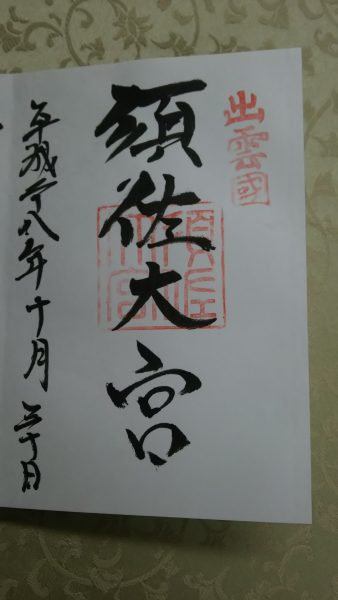 出雲國
須佐大宮
平成二十八年十月三十日